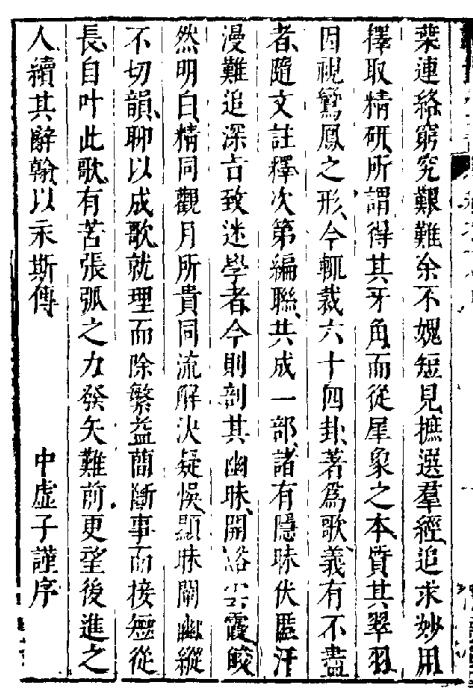 葉連絡窮究艱難余不媿短見摭選羣經追求妙用
擇取精研所謂得其牙角而從犀象之本質其翠羽
因視鸞鳳之形今輒裁六十四卦著爲歌義有不盡
者隨文註釋次第編聯共成一部諸有隱昧伏匿汗
漫難追深言致迷學者今則剖其幽昧開谿雲霞皎
然明白精同觀月所貴同流解決疑悞顯昧闡幽縱
不切韻聊以成歌就理而除繁蓋簡斷事而接短從
長自叶此歌有苦張弧之力發矢難前更望後進之
人續其辭翰以永斯傳
中虛子謹序